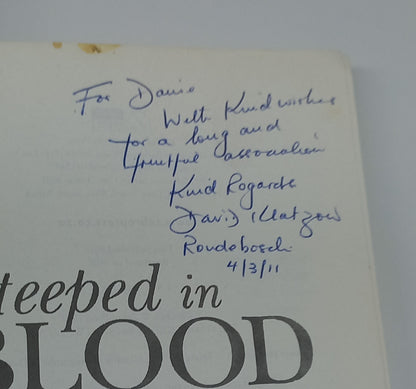 For Danie
With Kind wishes
for a long and
fruitful association
Kind Regards
David Klatzow
Rondebosch
4/3/11
teeped in
BLOOD